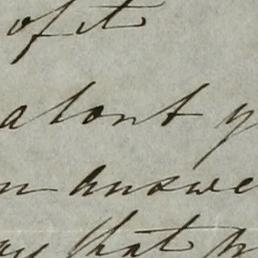 of it
about y
n answe
ay that h